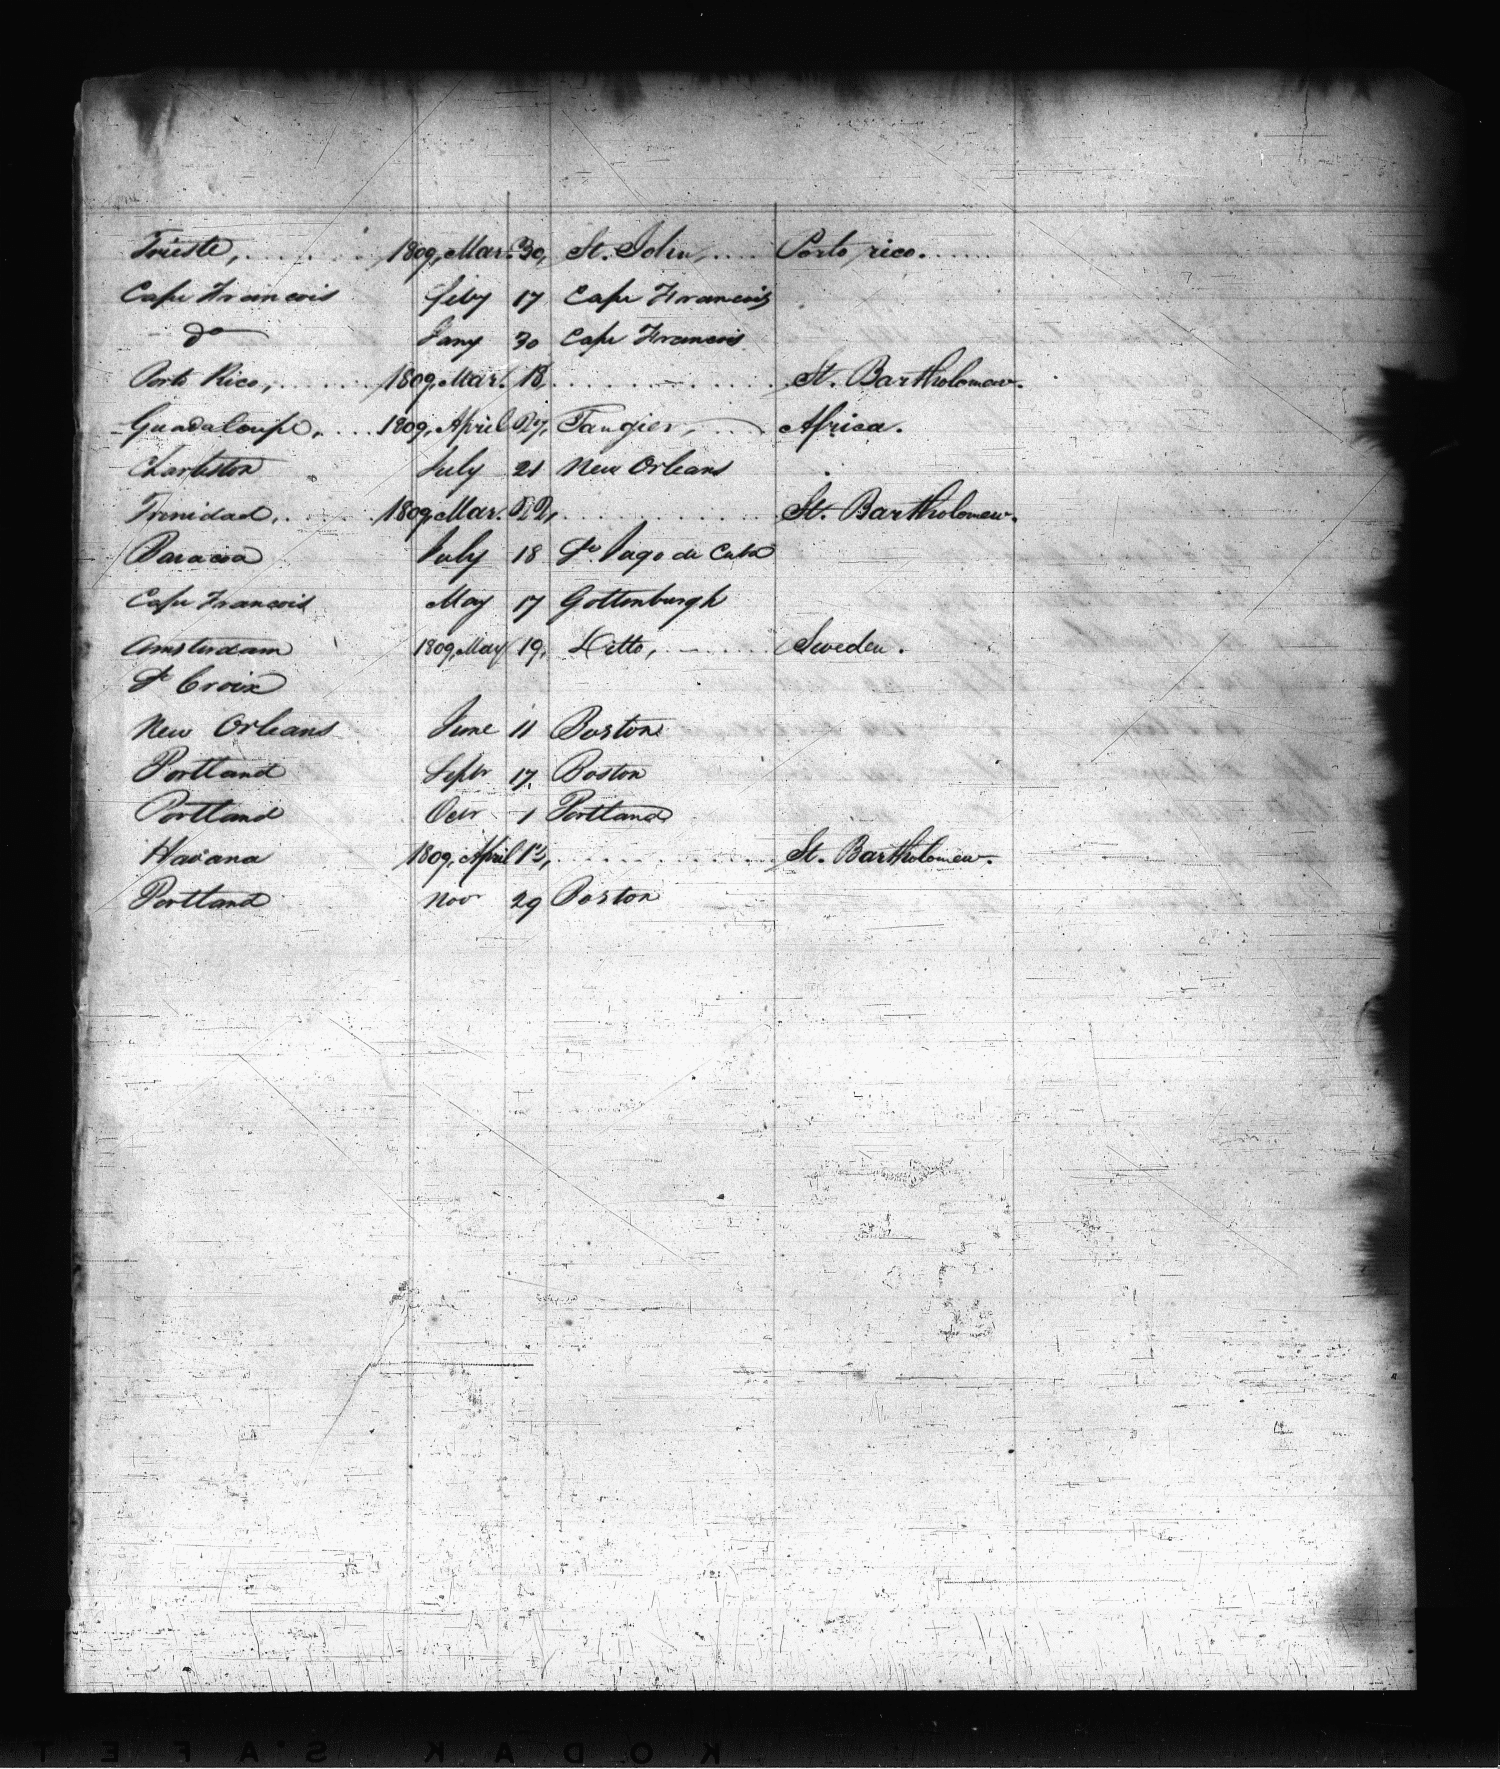 Trieste, . . . . . . . 1809, Mar. 30, St. John, . . . . Porto rico. . . . . .
Cape Francois Feby 17 Cape Francois
do Jany 30 Cape Francois
Porto Rico, . . . . . . . 1809, Mar. 18, . . . . . . . . . . . . St. Bartholomew.
Guadaloupe, . . . . 1809, April 27, Tangier, . . . . Africa.
Charleston July 21 New Orleans
Trinidad, . . . . . 1809, Mar. 22, . . . . . . . . . . . . St. Bartholomew.
Baracoa July 18 St. Iago de Cuba
Cape Francois May 17 Gottenburgh
Amsterdam 1809, May 19, Ditto, . . . . . . Sweden.
St Croix
New Orleans June 11 Boston
Portland Septr 17 Boston
Portland Octr 1 Portland
Havana 1809, April 13, . . . . . . . . . . . . St. Bartholomew.
Portland Nov 29 Boston
KODAK SAFET